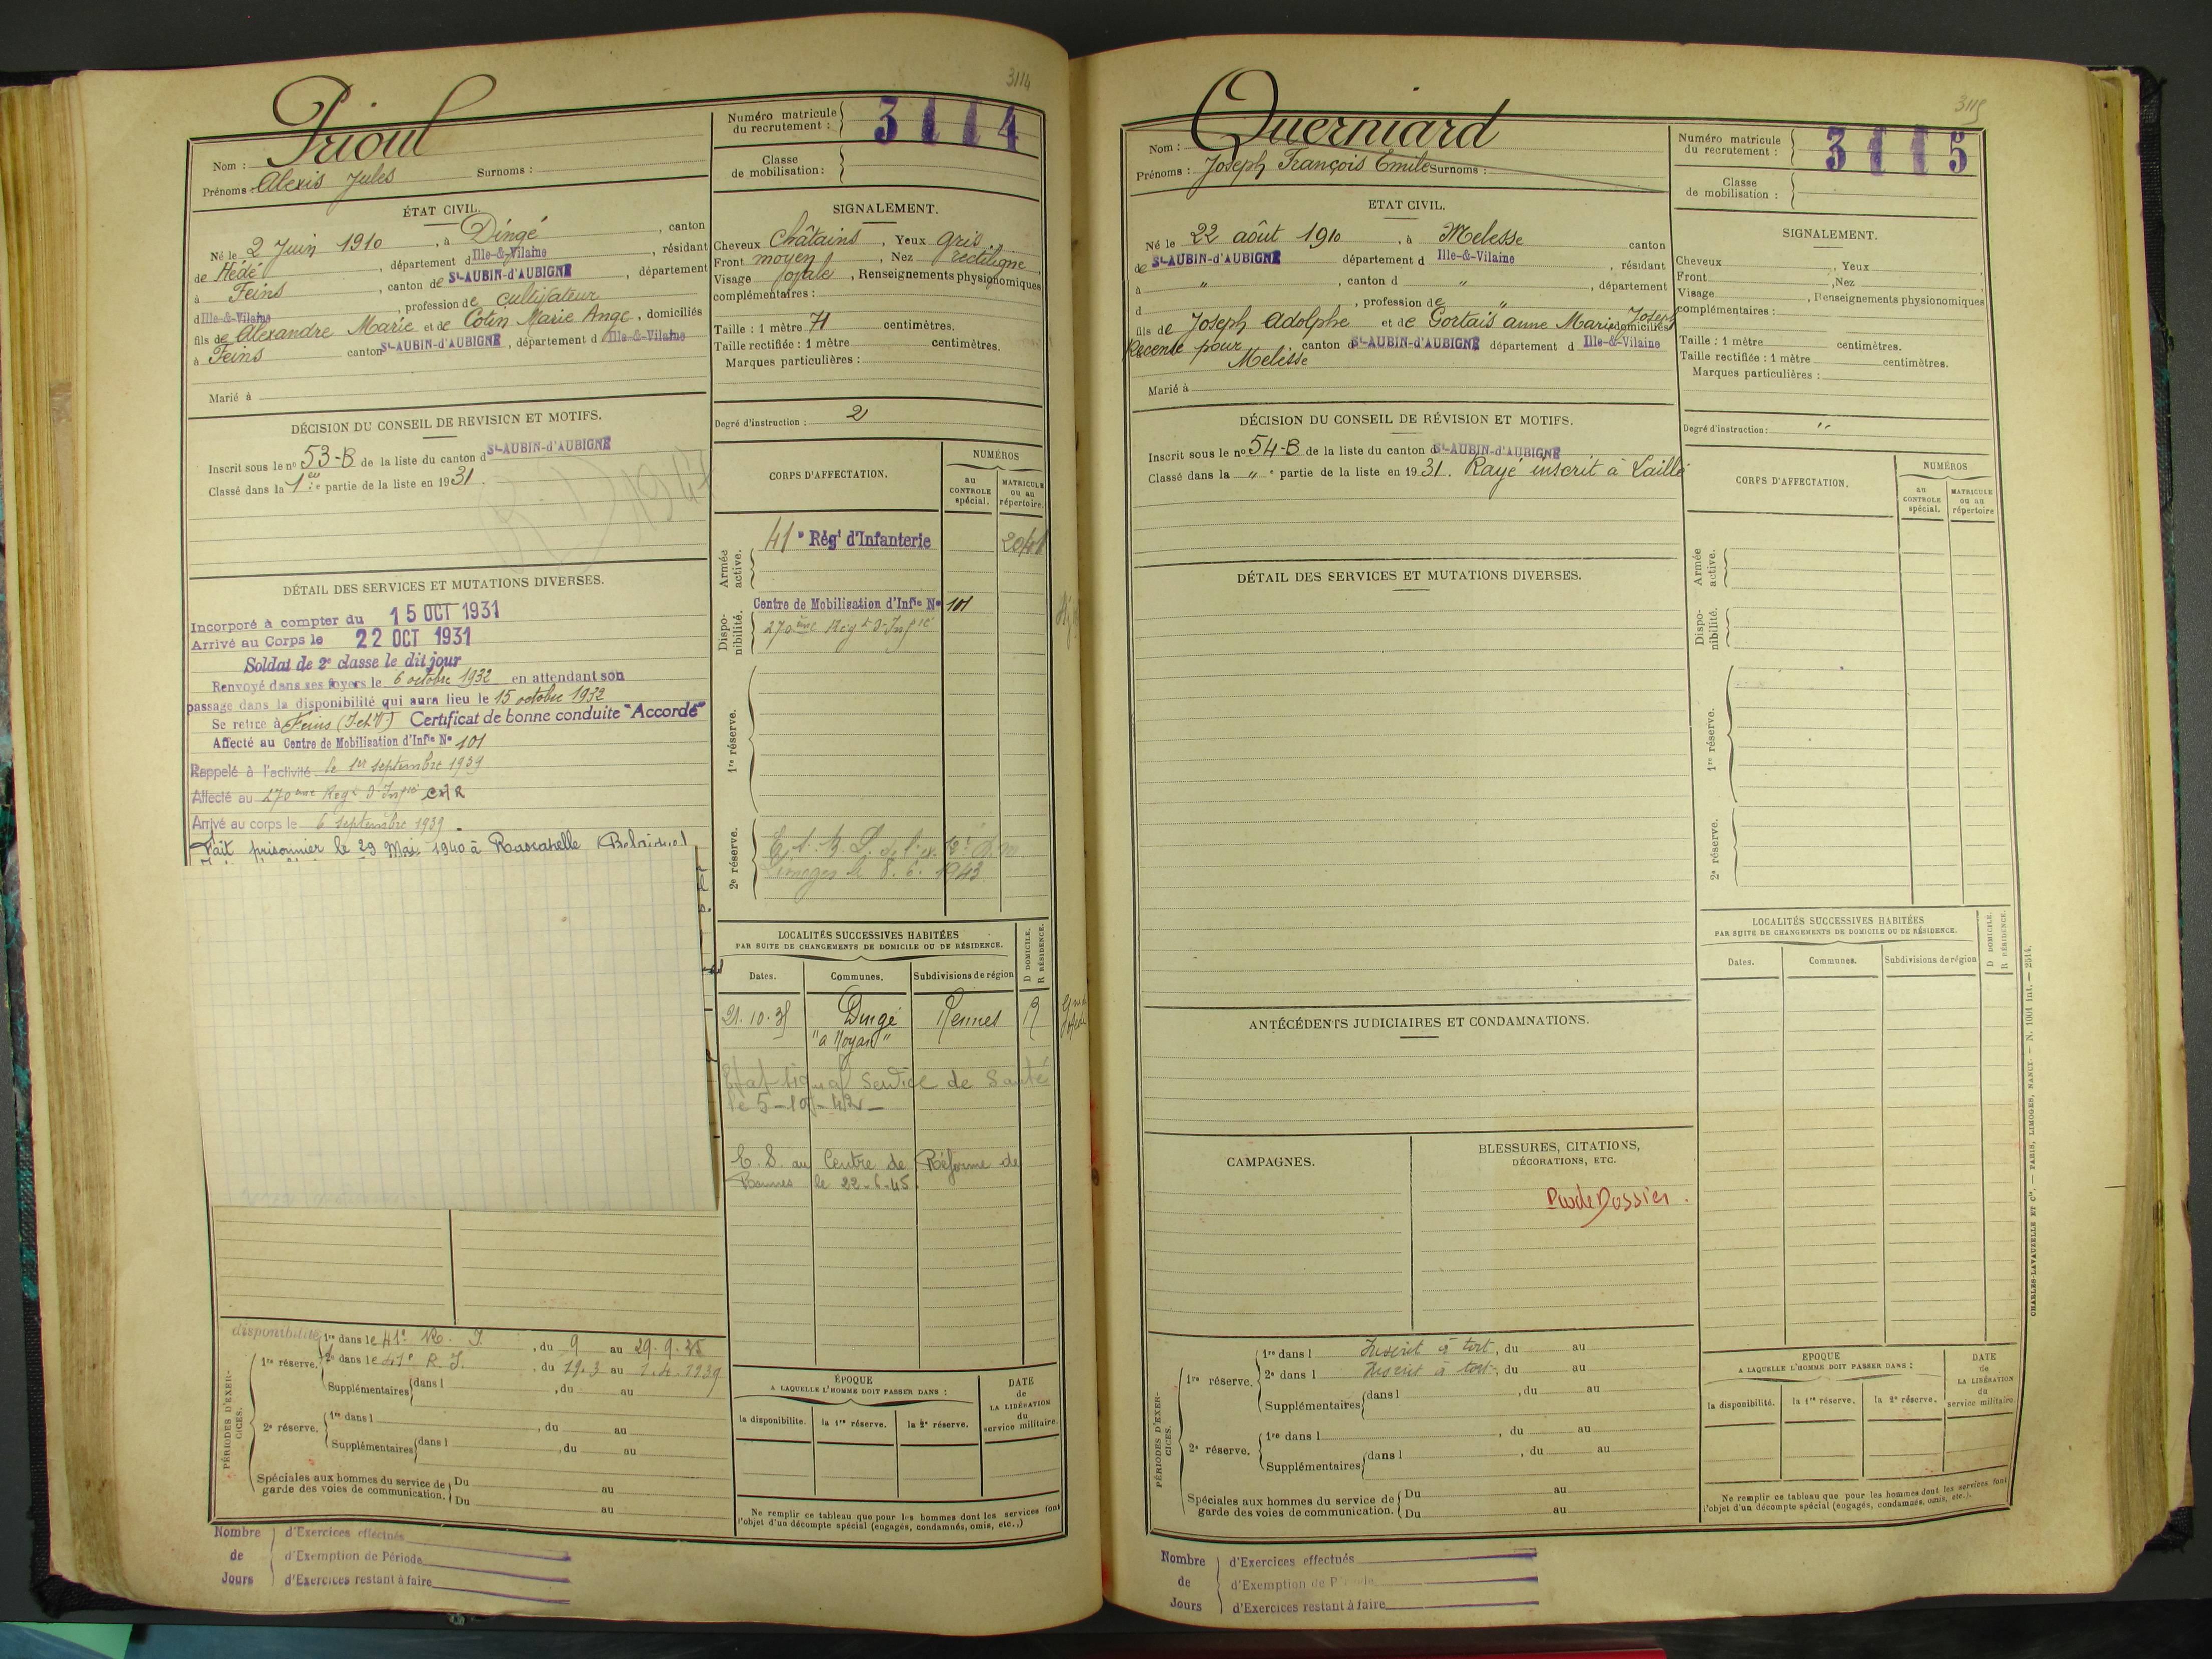 3114
Prioul
Nom :
Prénoms : Alexis Jules Surnoms :
Numéro matricule du recrutement : 3114
Classe de mobilisation :
ÉTAT CIVIL.
Né le 2 Juin 1910, à Dingé, canton
de Hédé, département d Ille-&-Vilaine, résidant
à Feins, canton de St-AUBIN-d'AUBIGNÉ, département
d Ille-&-Vilaine, profession de cultivateur
fils de Alexandre Marie et de Cotin Marie Ange, domiciliés
à Feins canton St-AUBIN-d'AUBIGNÉ, département d Ille-&-Vilaine
Marié à
SIGNALEMENT.
Cheveux Châtains, Yeux gris,
Front moyen, Nez rectiligne,
Visage ovale, Renseignements physionomiques
complémentaires :
Taille : 1 mètre 71 centimètres.
Taille rectifiée : 1 mètre centimètres.
Marques particulières :
Degré d'instruction : 2
DÉCISION DU CONSEIL DE REVISION ET MOTIFS.
Inscrit sous le no 53-B de la liste du canton d St-AUBIN-d'AUBIGNÉ
Classé dans la 1ère partie de la liste en 1931.
DÉTAIL DES SERVICES ET MUTATIONS DIVERSES.
Incorporé à compter du 15 OCT 1931
Arrivé au Corps le 22 OCT 1931
Soldat de 2e classe le dit jour
Renvoyé dans ses foyers le 6 octobre 1932 en attendant son
passage dans la disponibilité qui aura lieu le 15 octobre 1932
Se retire à Feins (I et V) Certificat de bonne conduite "Accordé"
Affecté au Centre de Mobilisation d'Infie No 101
Rappelé à l'activité le 1er septembre 1939
Affecté au 270ème Regt d'Infie
Arrivé au corps le 6 septembre 1939 -
Fait prisonnier le 29 Mai 1940 à
CORPS D'AFFECTATION.
NUMÉROS
au CONTROLE spécial.
MATRICULE ou au répertoire.
Armée active.
41e Régt d'Infanterie
Dispo- nibilité.
Centre de Mobilisation d'Infie No 101
270ème Regt d'Infie
1re réserve.
2e réserve.
Limoges le 8.6.1943
LOCALITÉS SUCCESSIVES HABITÉES
PAR SUITE DE CHANGEMENTS DE DOMICILE OU DE RÉSIDENCE.
D DOMICILE.
R RÉSIDENCE.
Dates. Communes. Subdivisions de région
21.10.35 Dingé Rennes R
Service de Santé
le 5-10-42-
C.S. au Centre de Réforme de
Rennes le 22-6-45.
PÉRIODES D'EXER- CICES.
disponibilité 1re dans le 41e R. I., du 9 au 29.9.35
1re réserve. 2e dans le 41e R. I., du 19.3 au 1.4.1939
Supplémentaires dans l, du au
2e réserve. 1re dans l, du au
Supplémentaires dans l, du au
Spéciales aux hommes du service de garde des voies de communication. Du au
Du au
ÉPOQUE
A LAQUELLE L'HOMME DOIT PASSER DANS :
la disponibilité. la 1re réserve. la 2e réserve.
DATE de LA LIBÉRATION du service militaire.
Ne remplir ce tableau que pour les hommes dont les services font
l'objet d'un décompte spécial (engagés, condamnés, omis, etc.,)
Nombre de Jours
d'Exercices effectués
d'Exemption de Période
d'Exercices restant à faire
3115
Querniard
Nom :
Prénoms : Joseph François Emile Surnoms :
Numéro matricule du recrutement : 3115
Classe de mobilisation :
ETAT CIVIL.
Né le 22 août 1910, à Melesse canton
de St-AUBIN-d'AUBIGNÉ département d Ille-&-Vilaine, résidant
à ", canton d ", département
d, profession de "
fils de Joseph Adolphe et de Gortais anne Marie Joseph domiciliés
Recensé pour Melesse, canton d St-AUBIN-d'AUBIGNÉ département d Ille-&-Vilaine
Marié à
SIGNALEMENT.
Cheveux, Yeux
Front, Nez
Visage, Renseignements physionomiques
complémentaires :
Taille : 1 mètre centimètres.
Taille rectifiée : 1 mètre centimètres.
Marques particulières :
Degré d'instruction : "
DÉCISION DU CONSEIL DE RÉVISION ET MOTIFS.
Inscrit sous le no 54-B de la liste du canton d St-AUBIN-d'AUBIGNÉ
Classé dans la " e partie de la liste en 1931. Rayé inscrit à Laillé
DÉTAIL DES SERVICES ET MUTATIONS DIVERSES.
CORPS D'AFFECTATION.
NUMÉROS
au CONTROLE spécial.
MATRICULE ou au répertoire
Armée active.
Dispo- nibilité.
1re réserve.
2e réserve.
ANTÉCÉDENTS JUDICIAIRES ET CONDAMNATIONS.
CAMPAGNES.
BLESSURES, CITATIONS,
DÉCORATIONS, ETC.
Pas de Dossier.
LOCALITÉS SUCCESSIVES HABITÉES
PAR SUITE DE CHANGEMENTS DE DOMICILE OU DE RÉSIDENCE.
D DOMICILE.
R RÉSIDENCE.
Dates. Communes. Subdivisions de région
PÉRIODES D'EXER- CICES.
1re réserve. 1re dans l Inscrit à tort, du au
2e dans l Inscrit à tort, du au
Supplémentaires dans l, du au
2e réserve. 1re dans l, du au
Supplémentaires dans l, du au
Spéciales aux hommes du service de garde des voies de communication. Du au
Du au
EPOQUE
A LAQUELLE L'HOMME DOIT PASSER DANS :
la disponibilité. la 1re réserve. la 2e réserve.
DATE de LA LIBÉRATION du service militaire
Ne remplir ce tableau que pour les hommes dont les services font
l'objet d'un décompte spécial (engagés, condamnés, omis, etc.).
Nombre de Jours
d'Exercices effectués
d'Exemption de
d'Exercices restant à faire
CHARLES-LAVAUZELLE ET Cie. — PARIS, LIMOGES, NANCY. — N. 1001 Int. — 2514.